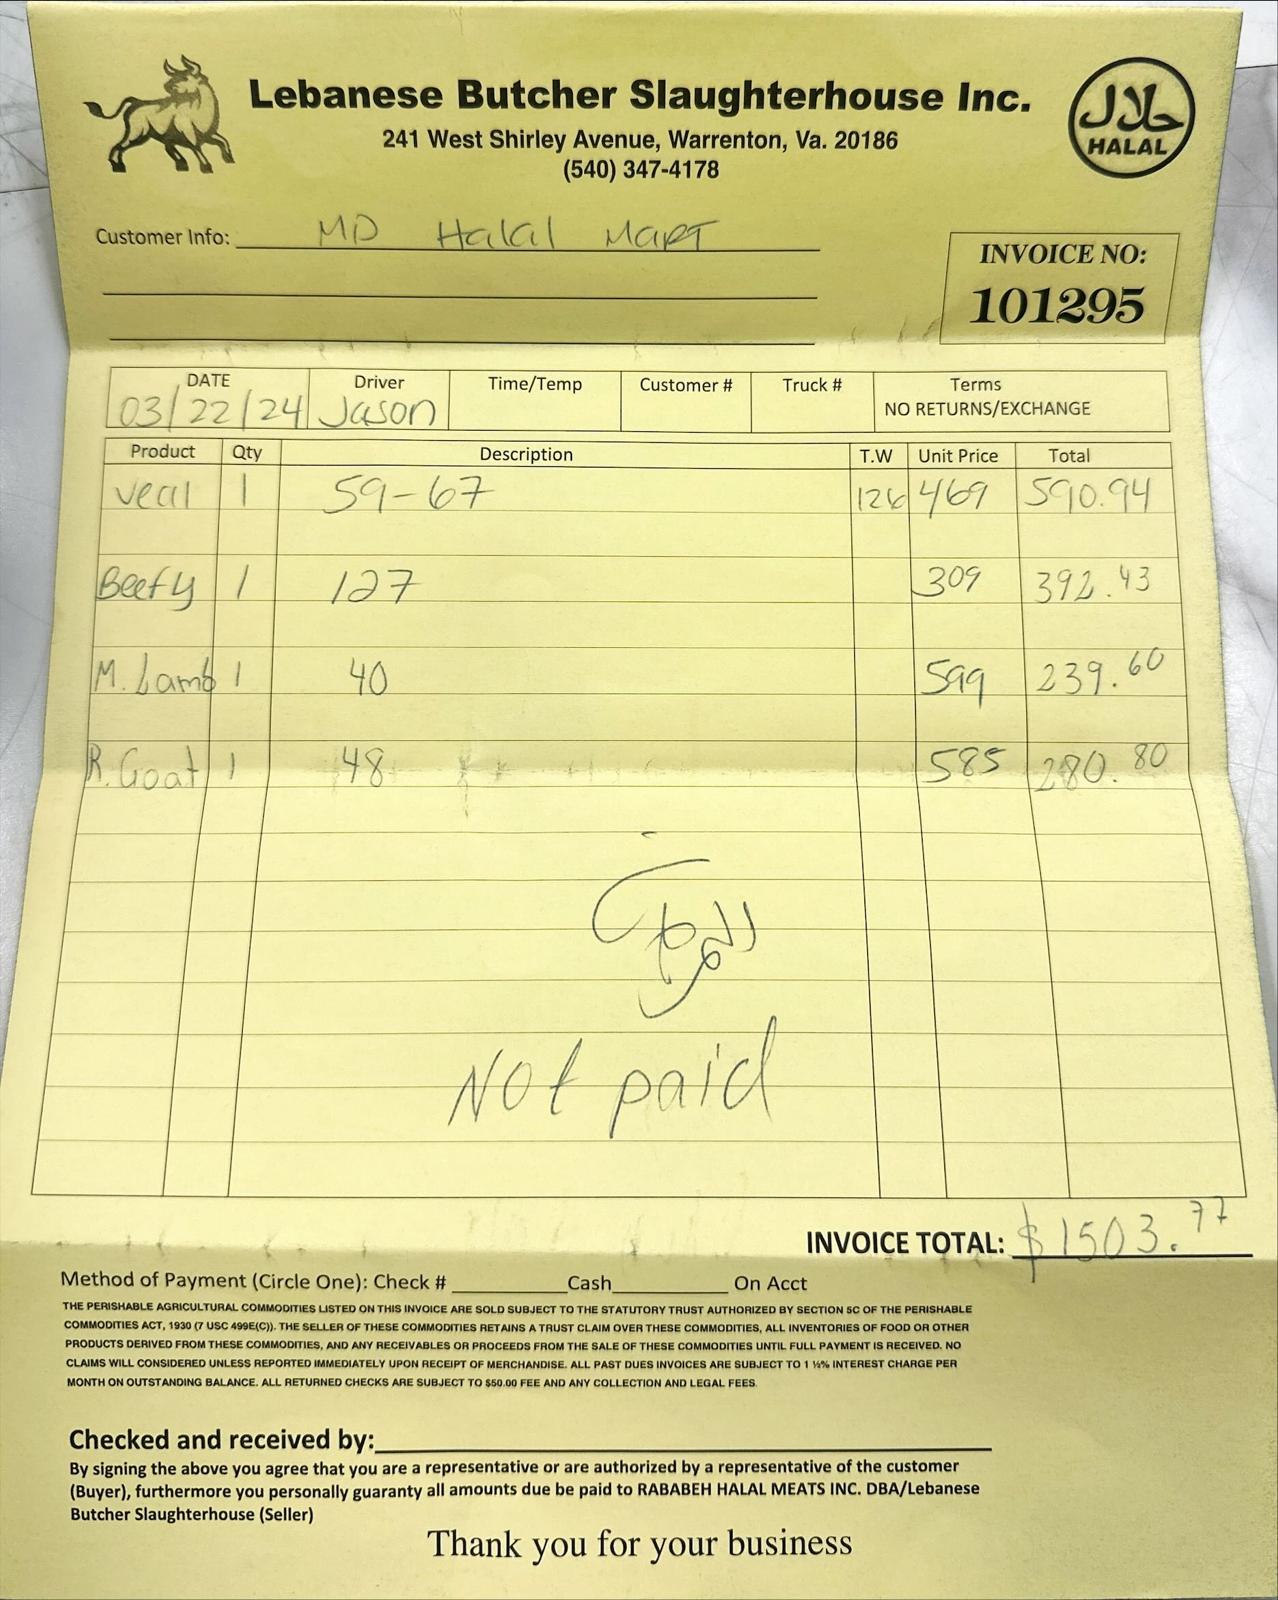 Lebanese Butcher Slaughterhouse Inc.
241 West Shirley Avenue, Warrenton, Va. 20186
(540) 347-4178
حلال
HALAL
Customer Info: MD Halal Mart
INVOICE NO:
101295
DATE Driver Time/Temp Customer # Truck # Terms
03/22/24 Jason NO RETURNS/EXCHANGE
Product Qty Description T.W Unit Price Total
veal 1 59-67 126 469 590.94
Beefy 1 127 309 392.43
M. Lamb 1 40 599 239.60
R. Goat 1 48 585 280.80
Not paid
INVOICE TOTAL: $1503.77
Method of Payment (Circle One): Check # Cash On Acct
THE PERISHABLE AGRICULTURAL COMMODITIES LISTED ON THIS INVOICE ARE SOLD SUBJECT TO THE STATUTORY TRUST AUTHORIZED BY SECTION 5C OF THE PERISHABLE
COMMODITIES ACT, 1930 (7 USC 499E(C)). THE SELLER OF THESE COMMODITIES RETAINS A TRUST CLAIM OVER THESE COMMODITIES, ALL INVENTORIES OF FOOD OR OTHER
PRODUCTS DERIVED FROM THESE COMMODITIES, AND ANY RECEIVABLES OR PROCEEDS FROM THE SALE OF THESE COMMODITIES UNTIL FULL PAYMENT IS RECEIVED. NO
CLAIMS WILL CONSIDERED UNLESS REPORTED IMMEDIATELY UPON RECEIPT OF MERCHANDISE. ALL PAST DUES INVOICES ARE SUBJECT TO 1 ½% INTEREST CHARGE PER
MONTH ON OUTSTANDING BALANCE. ALL RETURNED CHECKS ARE SUBJECT TO $50.00 FEE AND ANY COLLECTION AND LEGAL FEES.
Checked and received by:
By signing the above you agree that you are a representative or are authorized by a representative of the customer
(Buyer), furthermore you personally guaranty all amounts due be paid to RABABEH HALAL MEATS INC. DBA/Lebanese
Butcher Slaughterhouse (Seller)
Thank you for your business